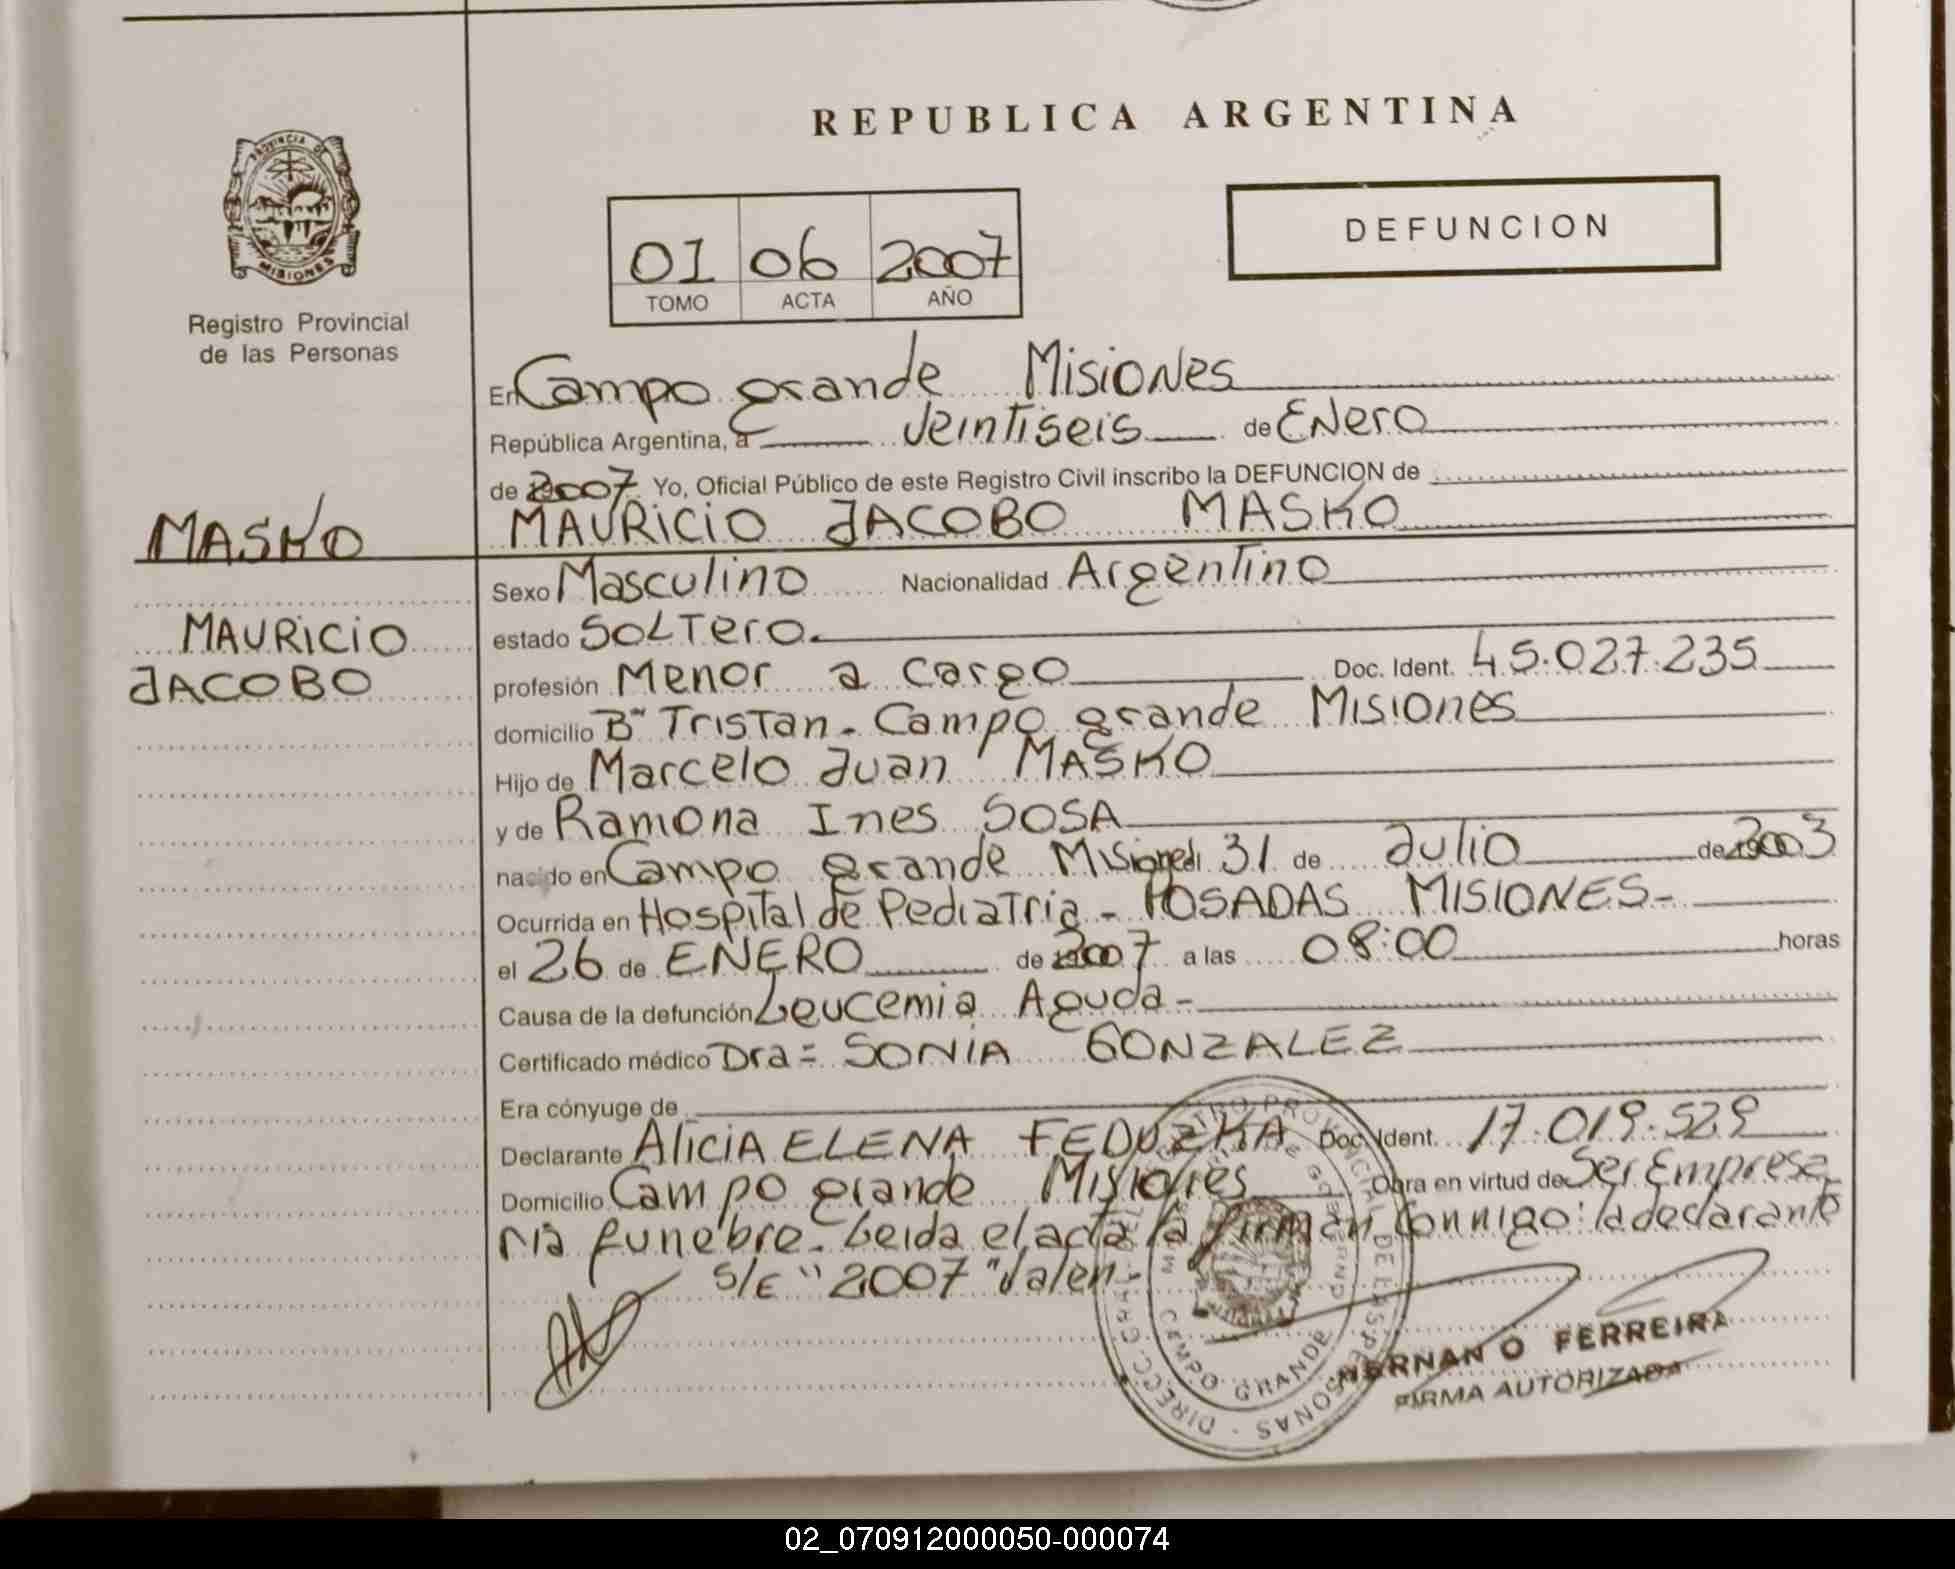 REPUBLICA ARGENTINA
PROVINCIA DE
MISIONES
Registro Provincial
de las Personas
01 06 2007
TOMO ACTA AÑO
DEFUNCION
En Campo grande Misiones
República Argentina, a Veintiseis de Enero
de 2007 Yo, Oficial Público de este Registro Civil inscribo la DEFUNCION de
MASKO
MAURICIO JACOBO MASKO
Sexo Masculino Nacionalidad Argentino
MAURICIO
JACOBO
estado SOLTero.
profesión Menor a cargo Doc. Ident. 45.027.235
domicilio B° Tristan - Campo grande Misiones
Hijo de Marcelo Juan MASKO
y de Ramona Ines SOSA
nacido en Campo grande Misiones el 31 de Julio de 2003
Ocurrida en Hospital de Pediatria - POSADAS MISIONES-
el 26 de ENERO de 2007 a las 08:00 horas
Causa de la defunción Leucemia Aguda-
Certificado médico Dra= SONIA GONZALEZ
Era cónyuge de
Declarante ALiCiA ELENA FEDUZKA Doc. Ident. 17.019.529
Domicilio Campo grande Misiones Obra en virtud de Ser Empresa
ria funebre. Leida el acta la firman Conmigo: la declarante
S/E "2007" Valen-
CAMPO GRANDE
HERNAN O FERREIRA
FIRMA AUTORIZADA
02_070912000050-000074